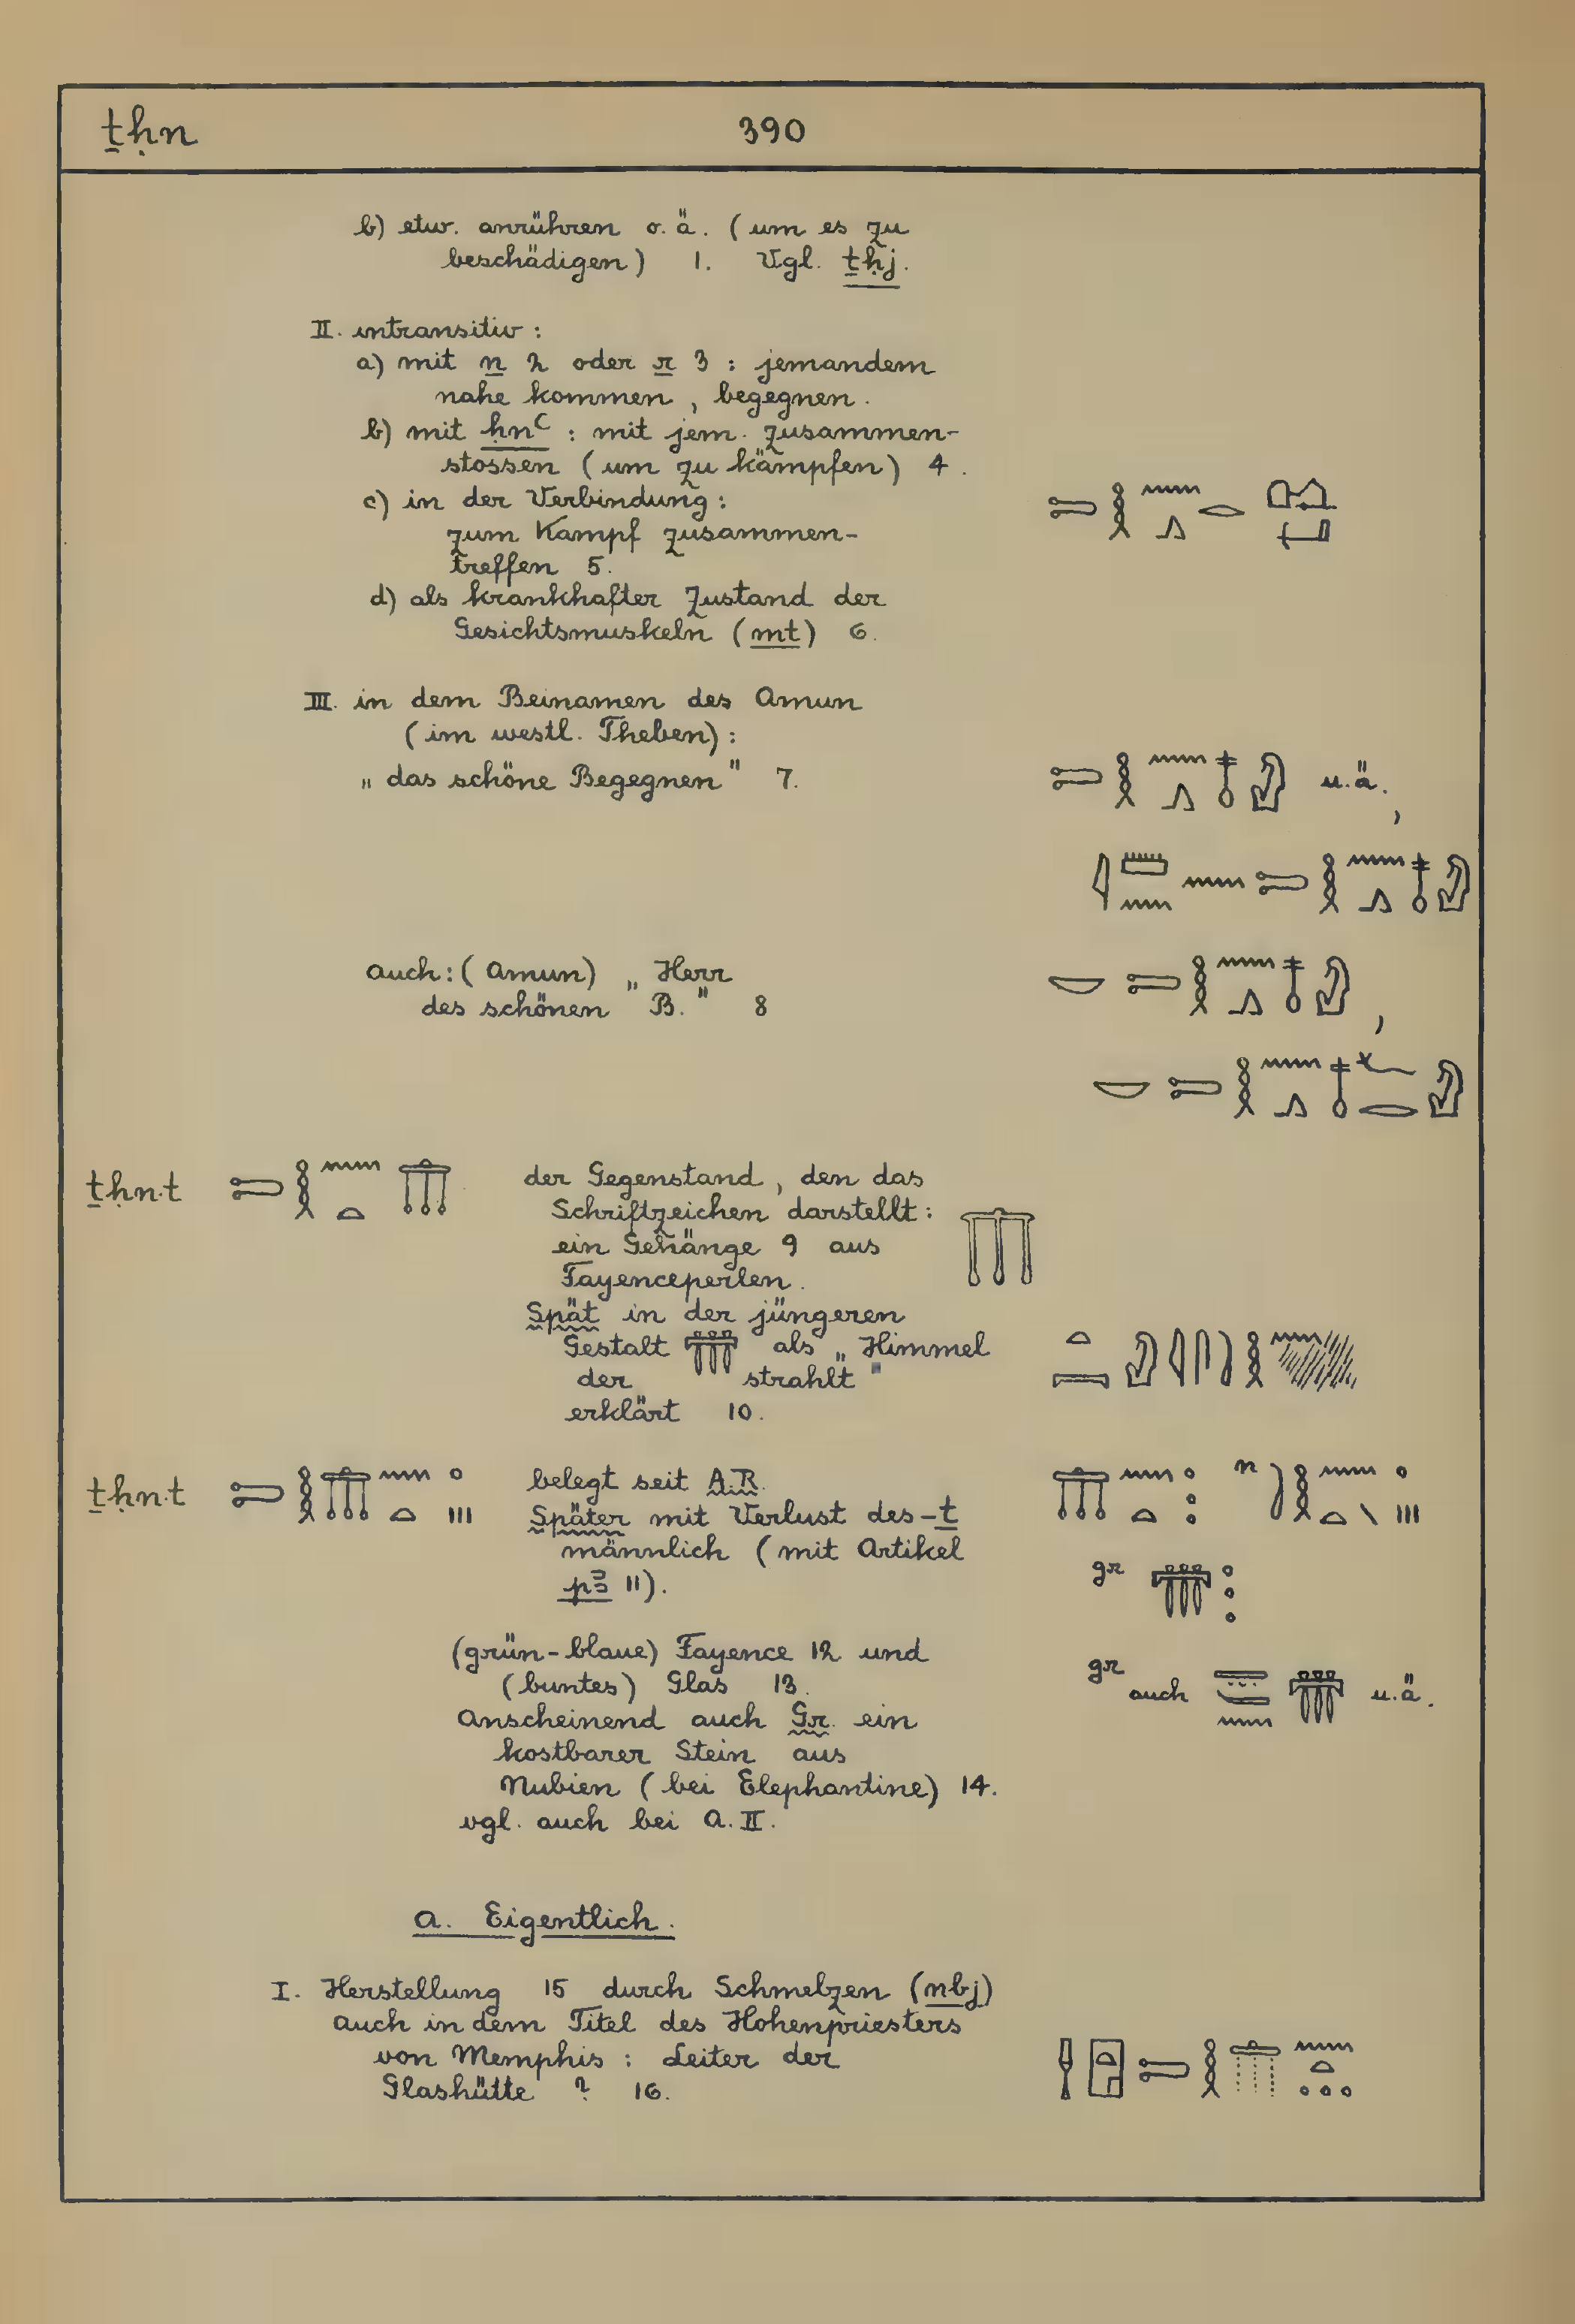 ṯḥn 390
b) etw. anrühren o. ä. (um es zu
beschädigen) 1. Vgl. ṯḥj.
II. intransitiv:
a) mit n 2 oder r 3 : jemandem
nahe kommen, begegnen.
b) mit ḥnꜥ : mit jem. zusammen-
stossen (um zu kämpfen) 4.
c) in der Verbindung:
zum Kampf zusammen-
treffen 5.
d) als krankhafter Zustand der
Gesichtsmuskeln (mt) 6.
III. in dem Beinamen des Amun
(im westl. Theben):
„das schöne Begegnen" 7. u. ä.,
auch: (Amun) „Herr
des schönen B." 8 ,
ṯḥn.t der Gegenstand, den das
Schriftzeichen darstellt:
ein Gehänge 9 aus
Fayenceperlen.
Spät in der jüngeren
Gestalt als „Himmel
der strahlt"
erklärt 10.
ṯḥn.t belegt seit A.R. n
Später mit Verlust des -t
männlich (mit Artikel
pꜣ 11). gr
(grün-blaue) Fayence 12 und
(buntes) Glas 13. gr auch u. ä.
Anscheinend auch Gr. ein
kostbarer Stein aus
Nubien (bei Elephantine) 14.
vgl. auch bei A. II.
A. Eigentlich.
I. Herstellung 15 durch Schmelzen (nbj)
auch in dem Titel des Hohenpriesters
von Memphis : Leiter der
Glashütte ? 16.